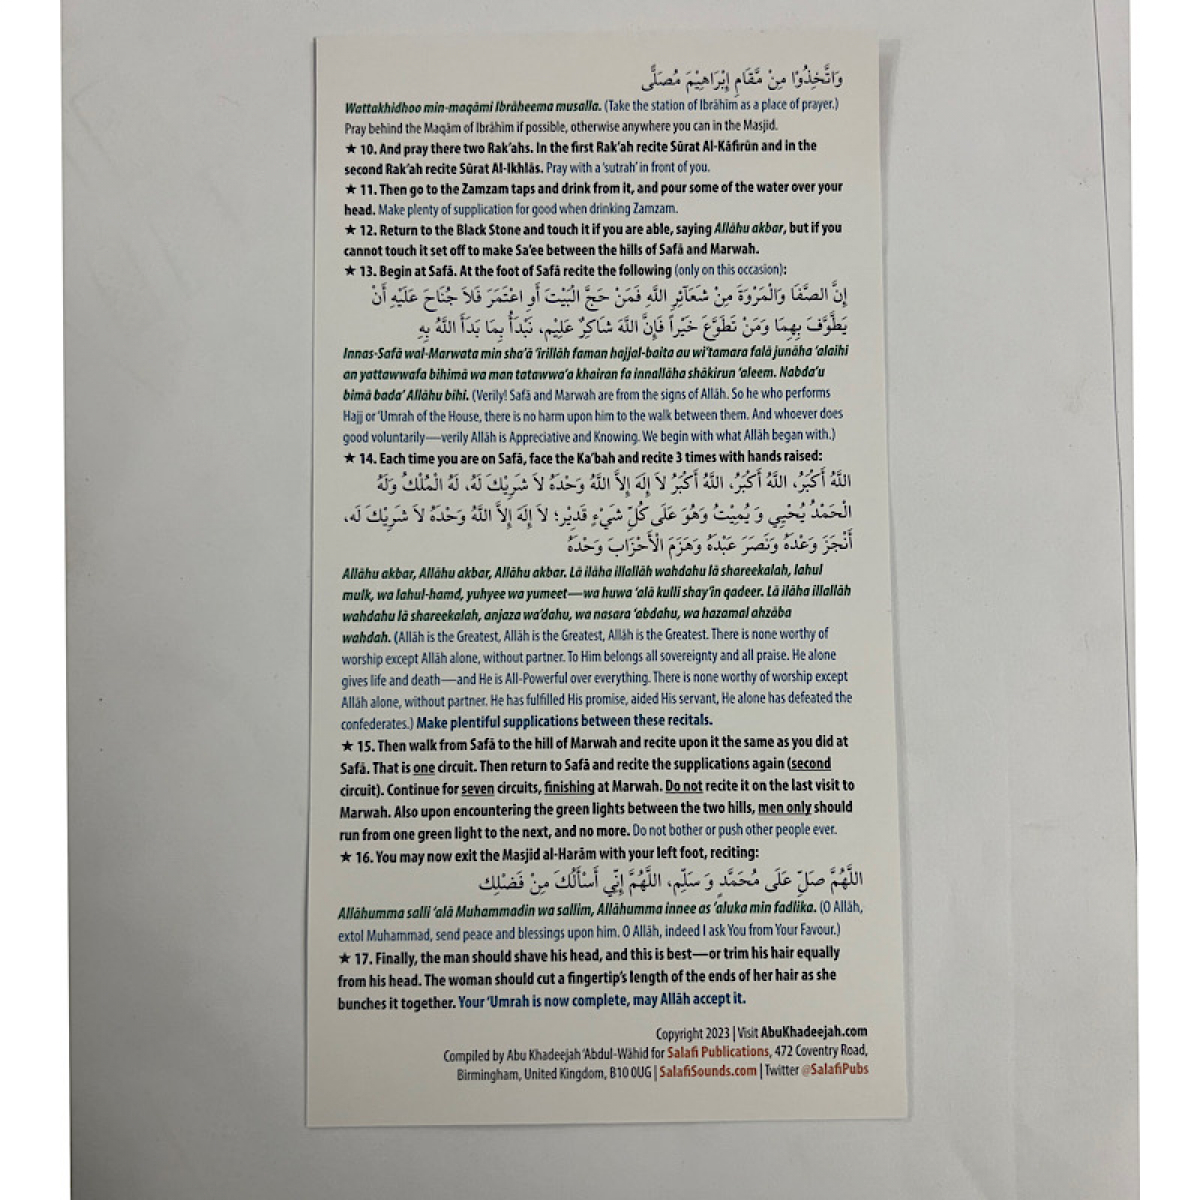 وَاتَّخِذُوْا مِنْ مَّقَامِ إِبْرَاهِيْمَ مُصَلًّى
Wattakhidhoo min-maqāmi Ibrāheema musalla. (Take the station of Ibrāhīm as a place of prayer.)
Pray behind the Maqām of Ibrāhīm if possible, otherwise anywhere you can in the Masjid.
★ 10. And pray there two Rak'ahs. In the first Rak'ah recite Sūrat Al-Kāfirūn and in the
second Rak'ah recite Sūrat Al-Ikhlās. Pray with a 'sutrah' in front of you.
★ 11. Then go to the Zamzam taps and drink from it, and pour some of the water over your
head. Make plenty of supplication for good when drinking Zamzam.
★ 12. Return to the Black Stone and touch it if you are able, saying Allāhu akbar, but if you
cannot touch it set off to make Sa'ee between the hills of Safā and Marwah.
★ 13. Begin at Safā. At the foot of Safā recite the following (only on this occasion):
إِنَّ الصَّفَا وَالْمَرْوَةَ مِنْ شَعَآئِرِ اللَّهِ فَمَنْ حَجَّ الْبَيْتَ أَوِ اعْتَمَرَ فَلاَ جُنَاحَ عَلَيْهِ أَنْ
يَطَّوَّفَ بِهِمَا وَمَنْ تَطَوَّعَ خَيْراً فَإِنَّ اللَّهَ شَاكِرٌ عَلِيْم، نَبْدَأُ بِمَا بَدَأَ اللَّهُ بِهِ
Innas-Safā wal-Marwata min sha'ā 'irillāh faman hajjal-baita au wi'tamara falā junāha 'alaihi
an yattawwafa bihimā wa man tatawwa'a khairan fa innallāha shākirun 'aleem. Nabda'u
bimā bada' Allāhu bihi. (Verily! Safā and Marwah are from the signs of Allāh. So he who performs
Hajj or 'Umrah of the House, there is no harm upon him to the walk between them. And whoever does
good voluntarily—verily Allāh is Appreciative and Knowing. We begin with what Allāh began with.)
★ 14. Each time you are on Safā, face the Ka'bah and recite 3 times with hands raised:
اللَّهُ أَكْبَرُ، اللَّهُ أَكْبَرُ، اللَّهُ أَكْبَرُ لاَ إِلَهَ إِلاَّ اللَّهُ وَحْدَهُ لاَ شَرِيْكَ لَهُ، لَهُ الْمُلْكُ وَلَهُ
الْحَمْدُ يُحْيِي وَ يُمِيْتُ وَهُوَ عَلَى كُلِّ شَيْءٍ قَدِيْر؛ لاَ إِلَهَ إِلاَّ اللَّهُ وَحْدَهُ لاَ شَرِيْكَ لَه،
أَنْجَزَ وَعْدَهُ وَنَصَرَ عَبْدَهُ وَهَزَمَ الْأَحْزَابَ وَحْدَهُ
Allāhu akbar, Allāhu akbar, Allāhu akbar. Lā ilāha illallāh wahdahu lā shareekalah, lahul
mulk, wa lahul-hamd, yuhyee wa yumeet—wa huwa 'alā kulli shay'in qadeer. Lā ilāha illallāh
wahdahu lā shareekalah, anjaza wa'dahu, wa nasara 'abdahu, wa hazamal ahzāba
wahdah. (Allāh is the Greatest, Allāh is the Greatest, Allāh is the Greatest. There is none worthy of
worship except Allāh alone, without partner. To Him belongs all sovereignty and all praise. He alone
gives life and death—and He is All-Powerful over everything. There is none worthy of worship except
Allāh alone, without partner. He has fulfilled His promise, aided His servant, He alone has defeated the
confederates.) Make plentiful supplications between these recitals.
★ 15. Then walk from Safā to the hill of Marwah and recite upon it the same as you did at
Safā. That is one circuit. Then return to Safā and recite the supplications again (second
circuit). Continue for seven circuits, finishing at Marwah. Do not recite it on the last visit to
Marwah. Also upon encountering the green lights between the two hills, men only should
run from one green light to the next, and no more. Do not bother or push other people ever.
★ 16. You may now exit the Masjid al-Harām with your left foot, reciting:
اللَّهُمَّ صَلِّ عَلَى مُحَمَّدٍ وَ سَلِّم، اللَّهُمَّ إِنِّي أَسْأَلُكَ مِنْ فَضْلِك
Allāhumma salli 'alā Muhammadin wa sallim, Allāhumma innee as 'aluka min fadlika. (O Allāh,
extol Muhammad, send peace and blessings upon him. O Allāh, indeed I ask You from Your Favour.)
★ 17. Finally, the man should shave his head, and this is best—or trim his hair equally
from his head. The woman should cut a fingertip's length of the ends of her hair as she
bunches it together. Your 'Umrah is now complete, may Allāh accept it.
Copyright 2023 | Visit AbuKhadeejah.com
Compiled by Abu Khadeejah 'Abdul-Wāhid for Salafi Publications, 472 Coventry Road,
Birmingham, United Kingdom, B10 0UG | SalafiSounds.com | Twitter @SalafiPubs